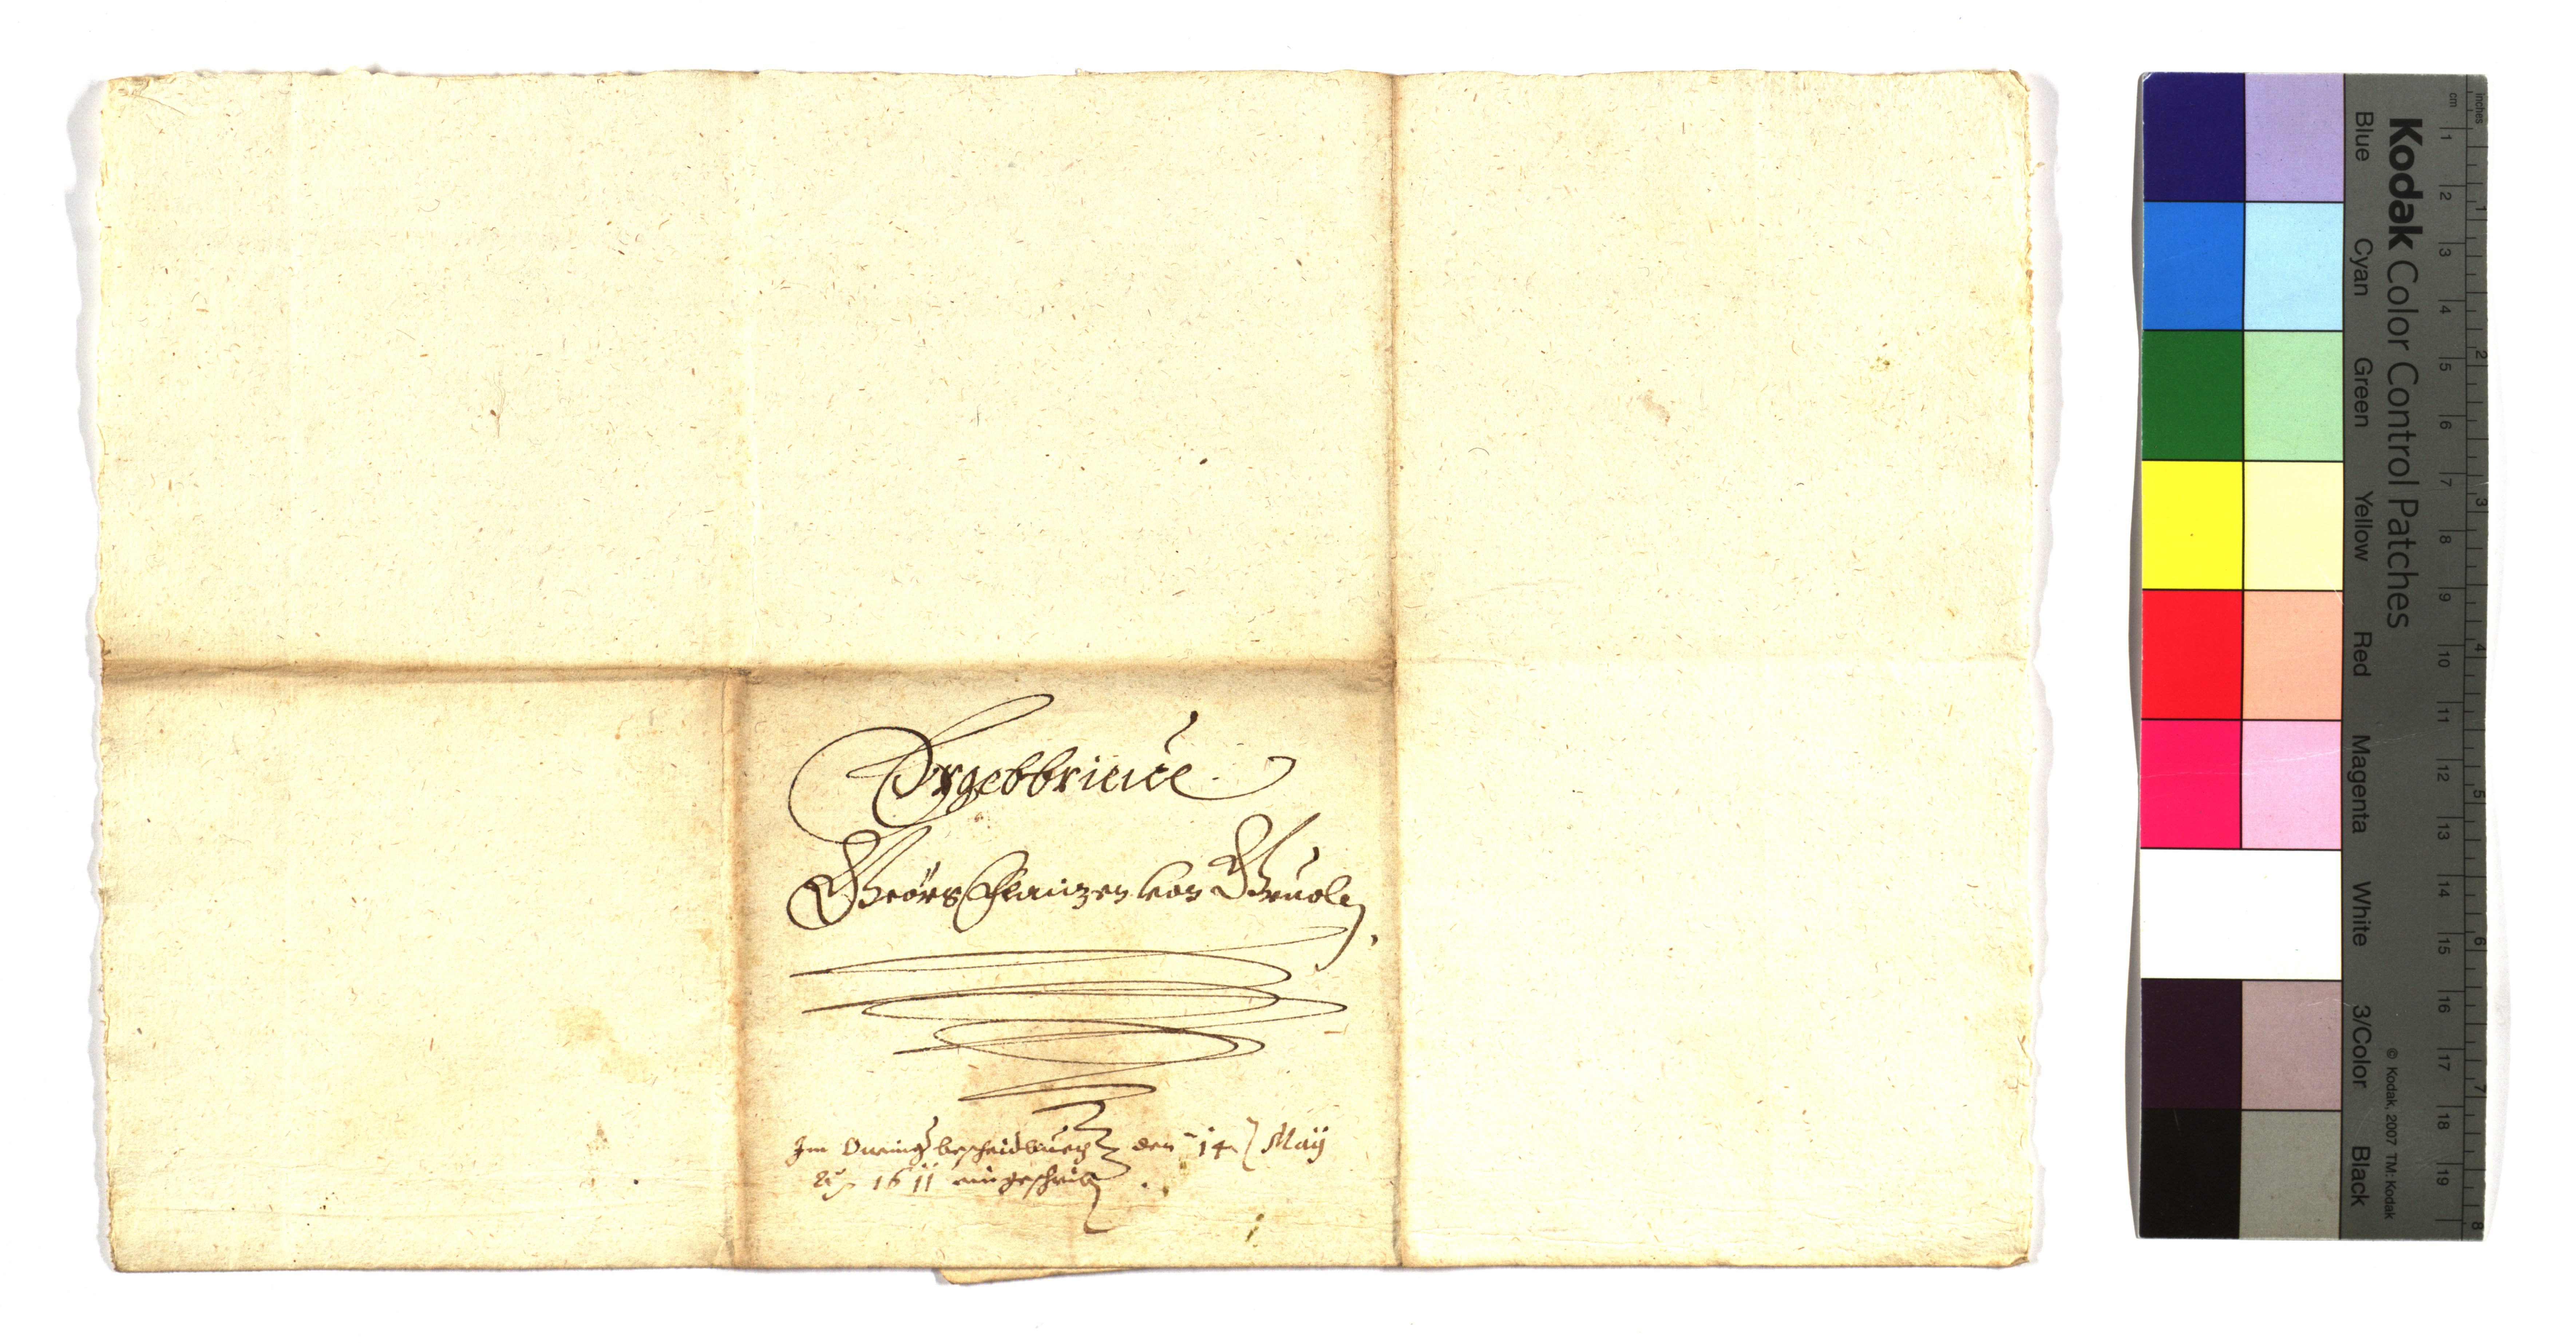 Ergebbrieue
Geörg Clainzen von Gruoln,
Im bescheidbuech den 14 May
Aō 1611 eingeschrib
inches
cm
1 2 3 4 5 6 7 8 9 10 11 12 13 14 15 16 17 18 19
1 2 3 4 5 6 7 8
Kodak Color Control Patches
© Kodak, 2007 TM: Kodak
Blue Cyan Green Yellow Red Magenta White 3/Color Black